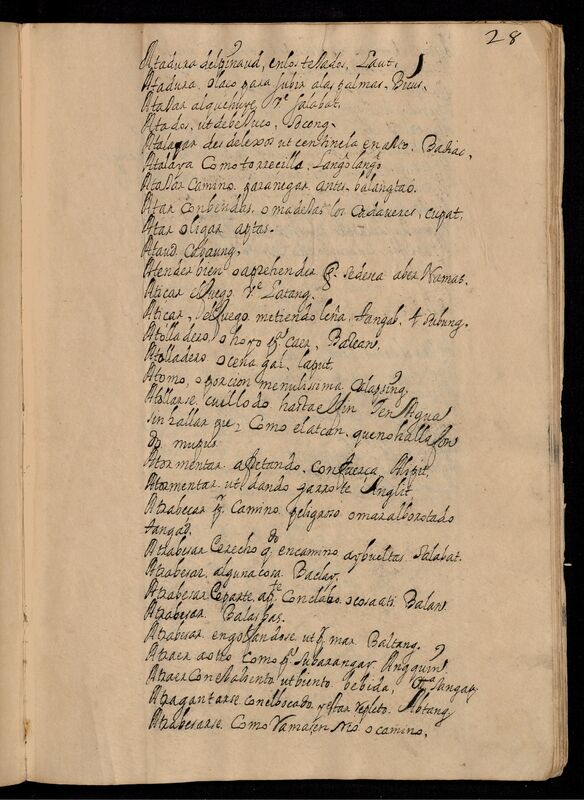 28
Atadura del pinaud, en los tejados, Laut.
Atadura o laço para subir a las palmas. Bicus.
Atajar al que huye, Ve Salabat.
Atados, ut de bejuco, Bocong.
Atalayar desde lexos ut centinela en alto. Bantac.
Atalaya Como torrecilla, Langolango
Atajar Camino, para negar, antes, balangtao.
Atar con bendas, o madejas los Cadaveres, cupat.
Atar o ligar aptas.
Ataud. Cabaung.
Atender bien o aprehender qe. se desea aber
Aticar el fuego Ve Latang.
Aticar, el fuego, metiendo leña, Sungab, t Subung.
Atolladero, o hoyo pa. caer, Balean
Atolladero o cenagal, laput.
Atomo, o porcion menutissima Calapsing.
Atollarse, en el lodo hasta el fin en Agua
sin hallar Como el atcan, que no halla fon
do mupus.
Atormentar apretando, con fuerça Alipit.
Atormentar ut dando garrote Anglit.
Atrabecar Camino peligroso o mar alborotado
tangad.
Atrabesar Derecho qdo. en camino ay bueltas. Salabat.
Atrabesar, alguna cosa. Baclay.
Atrabesar de parte a pte. con clabo, o cosa ati Balans
Atrabesar. Balasbas.
Atrabesar engolfandose, ut pr. mar Baltang.
Atraer a otro como pr. Angguin
Atraer con el aliento ut biento bebida, Sungap
Atragantarse con el bocado, y estar repleto. Abtang
Atrabesarse. Como Rama en Rio o camino.